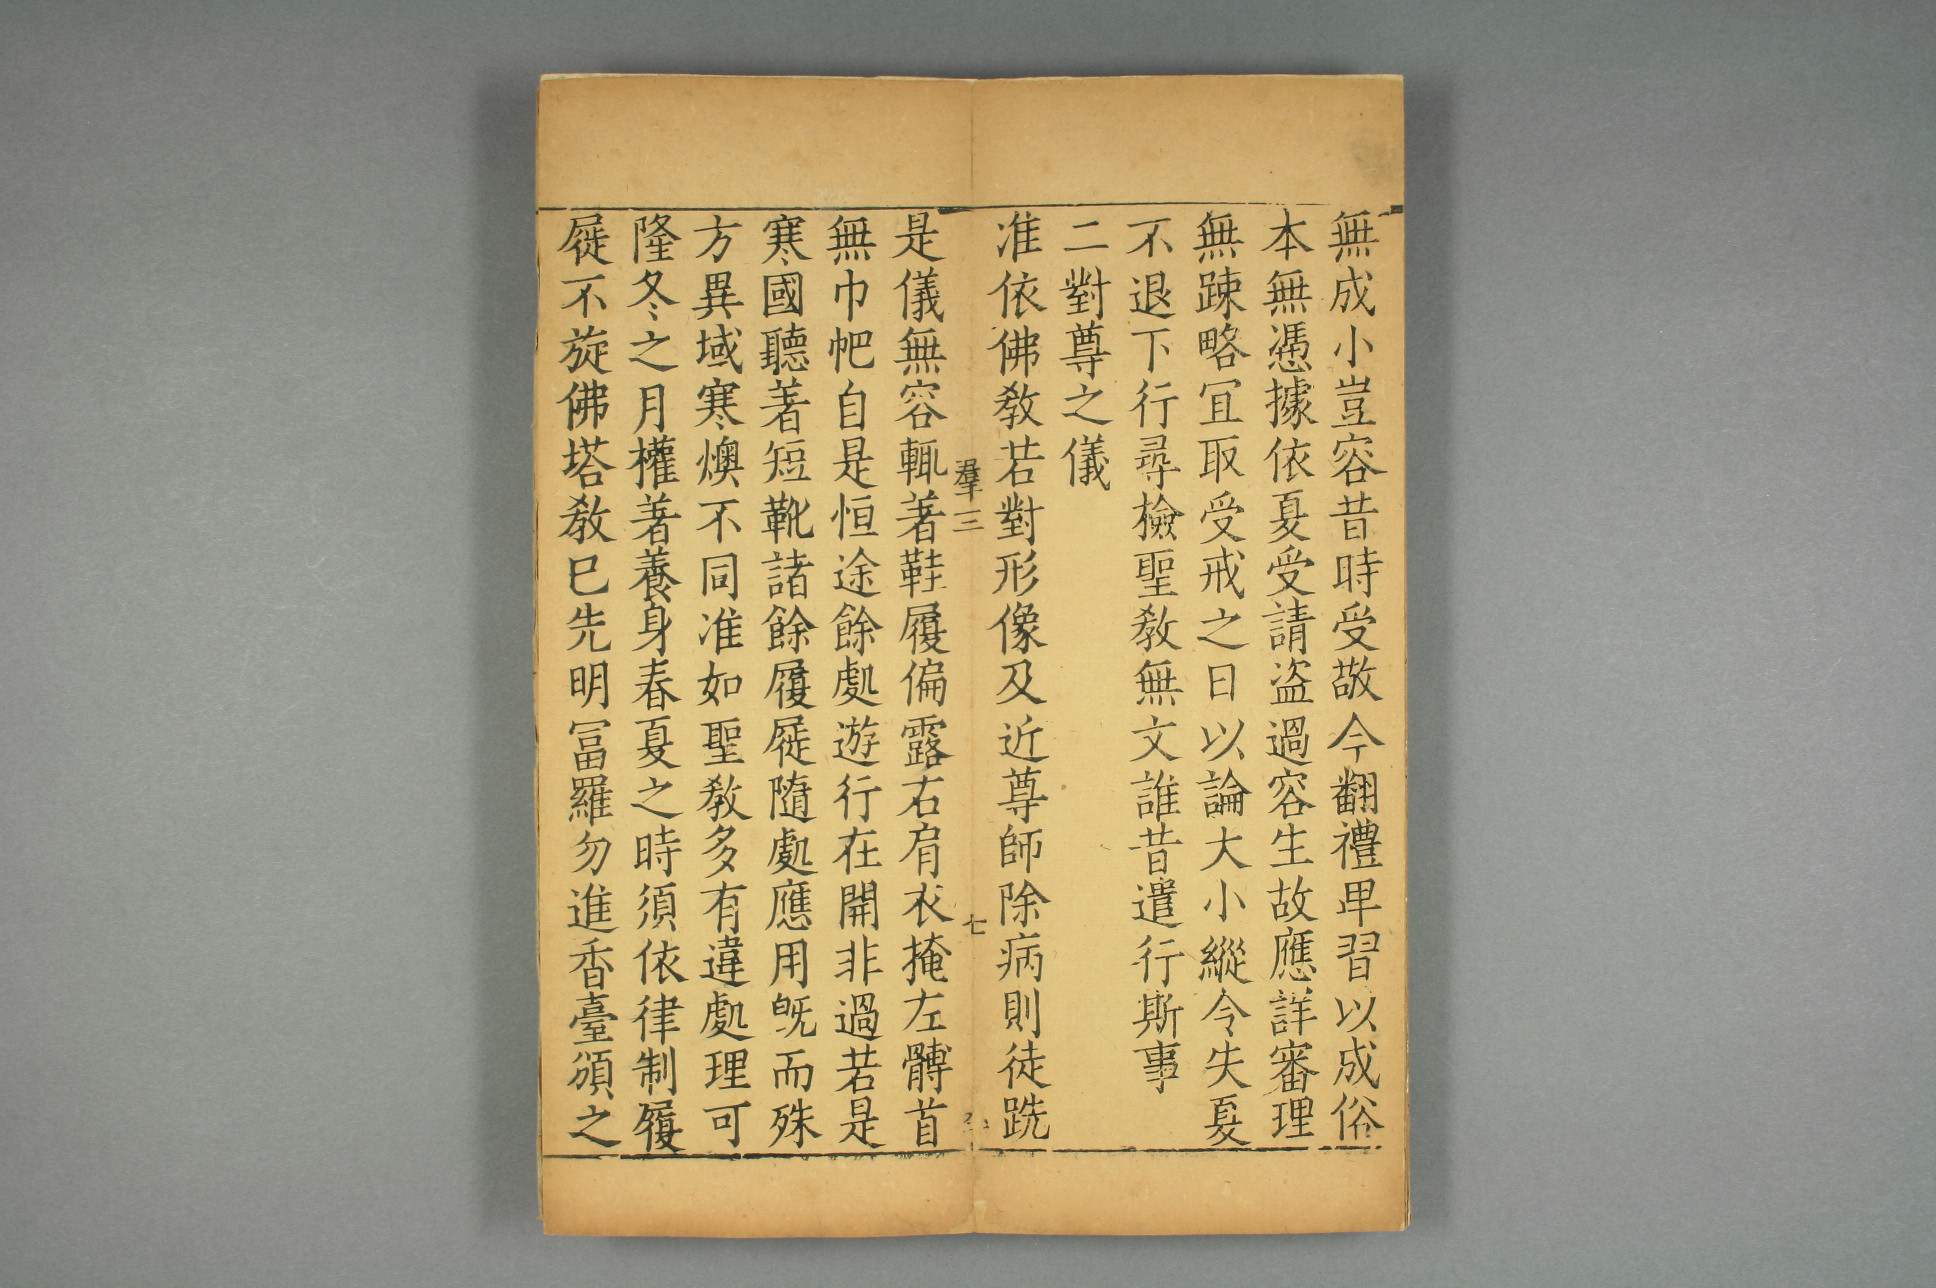 無成小豈容昔時受敬今翻禮卑習以成俗
本無憑據依夏受請盜過容生故應詳審理
無踈略冝取受戒之日以論大小縱令失夏
不退下行尋檢聖教無文誰昔遣行斯事
二對尊之儀
准依佛教若對形像及近尊師除病則徒跣
是儀無容輒著鞋履偏露右肩衣掩左髆首
無巾帊自是恒途餘處遊行在開非過若是
寒國聽著短靴諸餘履屣隨處應用旣而殊
方異域寒燠不同准如聖教多有違處理可
隆冬之月權著養身春夏之時須依律制履
屣不旋佛塔教已先明冨羅勿進香臺頒之
羣三
七